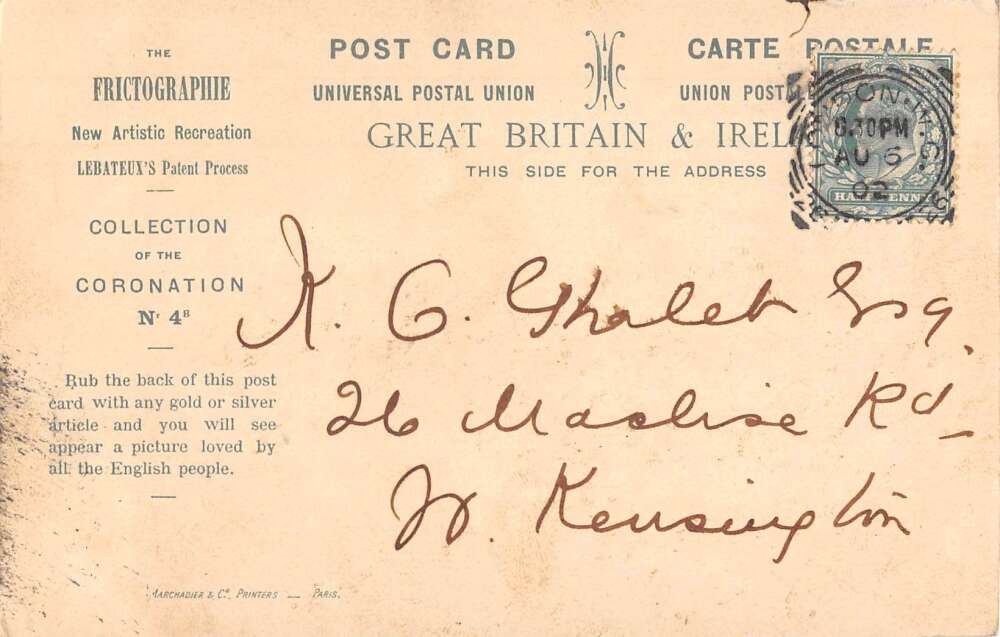 THE
FRICTOGRAPHIE
New Artistic Recreation
LEBATEUX'S Patent Process
COLLECTION
OF THE
CORONATION
Nr 4B
Rub the back of this post
card with any gold or silver
article and you will see
appear a picture loved by
all the English people.
MARCHADIER & Co. PRINTERS — PARIS.
POST CARD
UNIVERSAL POSTAL UNION
CARTE POSTALE
UNION POSTAL
GREAT BRITAIN & IREL
THIS SIDE FOR THE ADDRESS
8.30PM
AU 6
02
HALFPENNY
K. C. Ghaleb Esq.
26 Maclise Rd
W. Kensington